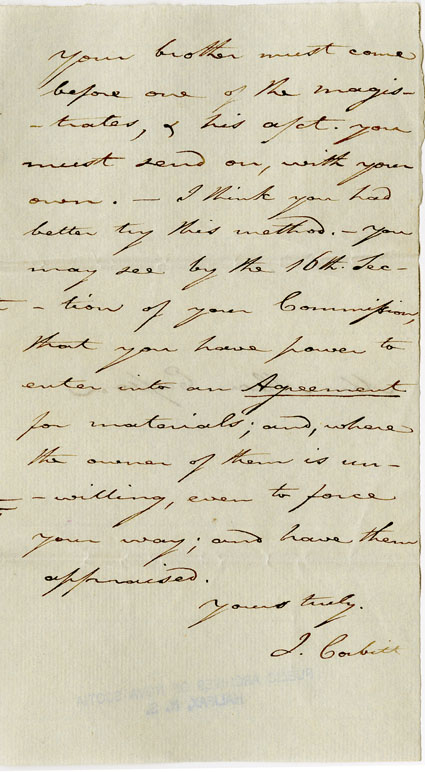 your brother must come
before one of the magis-
-trates, & his afct. you
must send on, with your
own. — I think you had
better try this method. — You
may see by the 16th. Sec-
-tion of your Commission,
that you have power to
enter into an Agreement
for materials; and, where
the owner of them is un-
-willing, even to force
your way; and have them
appraised.
yours truly.
J. Corbitt
PUBLIC ARCHIVES OF NOVA SCOTIA
HALIFAX, N. S.